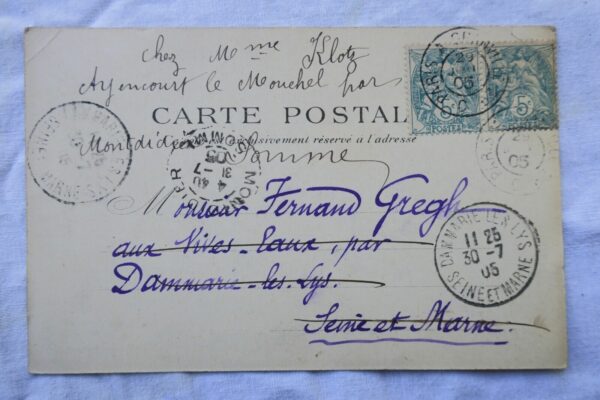 chez Mme Klotz
Ayencourt le Monchel par
CARTE POSTALE
Montdidier
exclusivement réservé à l'adresse
Somme
Monsieur Fernand Gregh
aux Vives-Eaux, par
Dammarie-les-Lys.
Seine et Marne.
DAMMARIE LES LYS
11 25
30 -7
05
SEINE ET MARNE
31 -7
05
5c
05